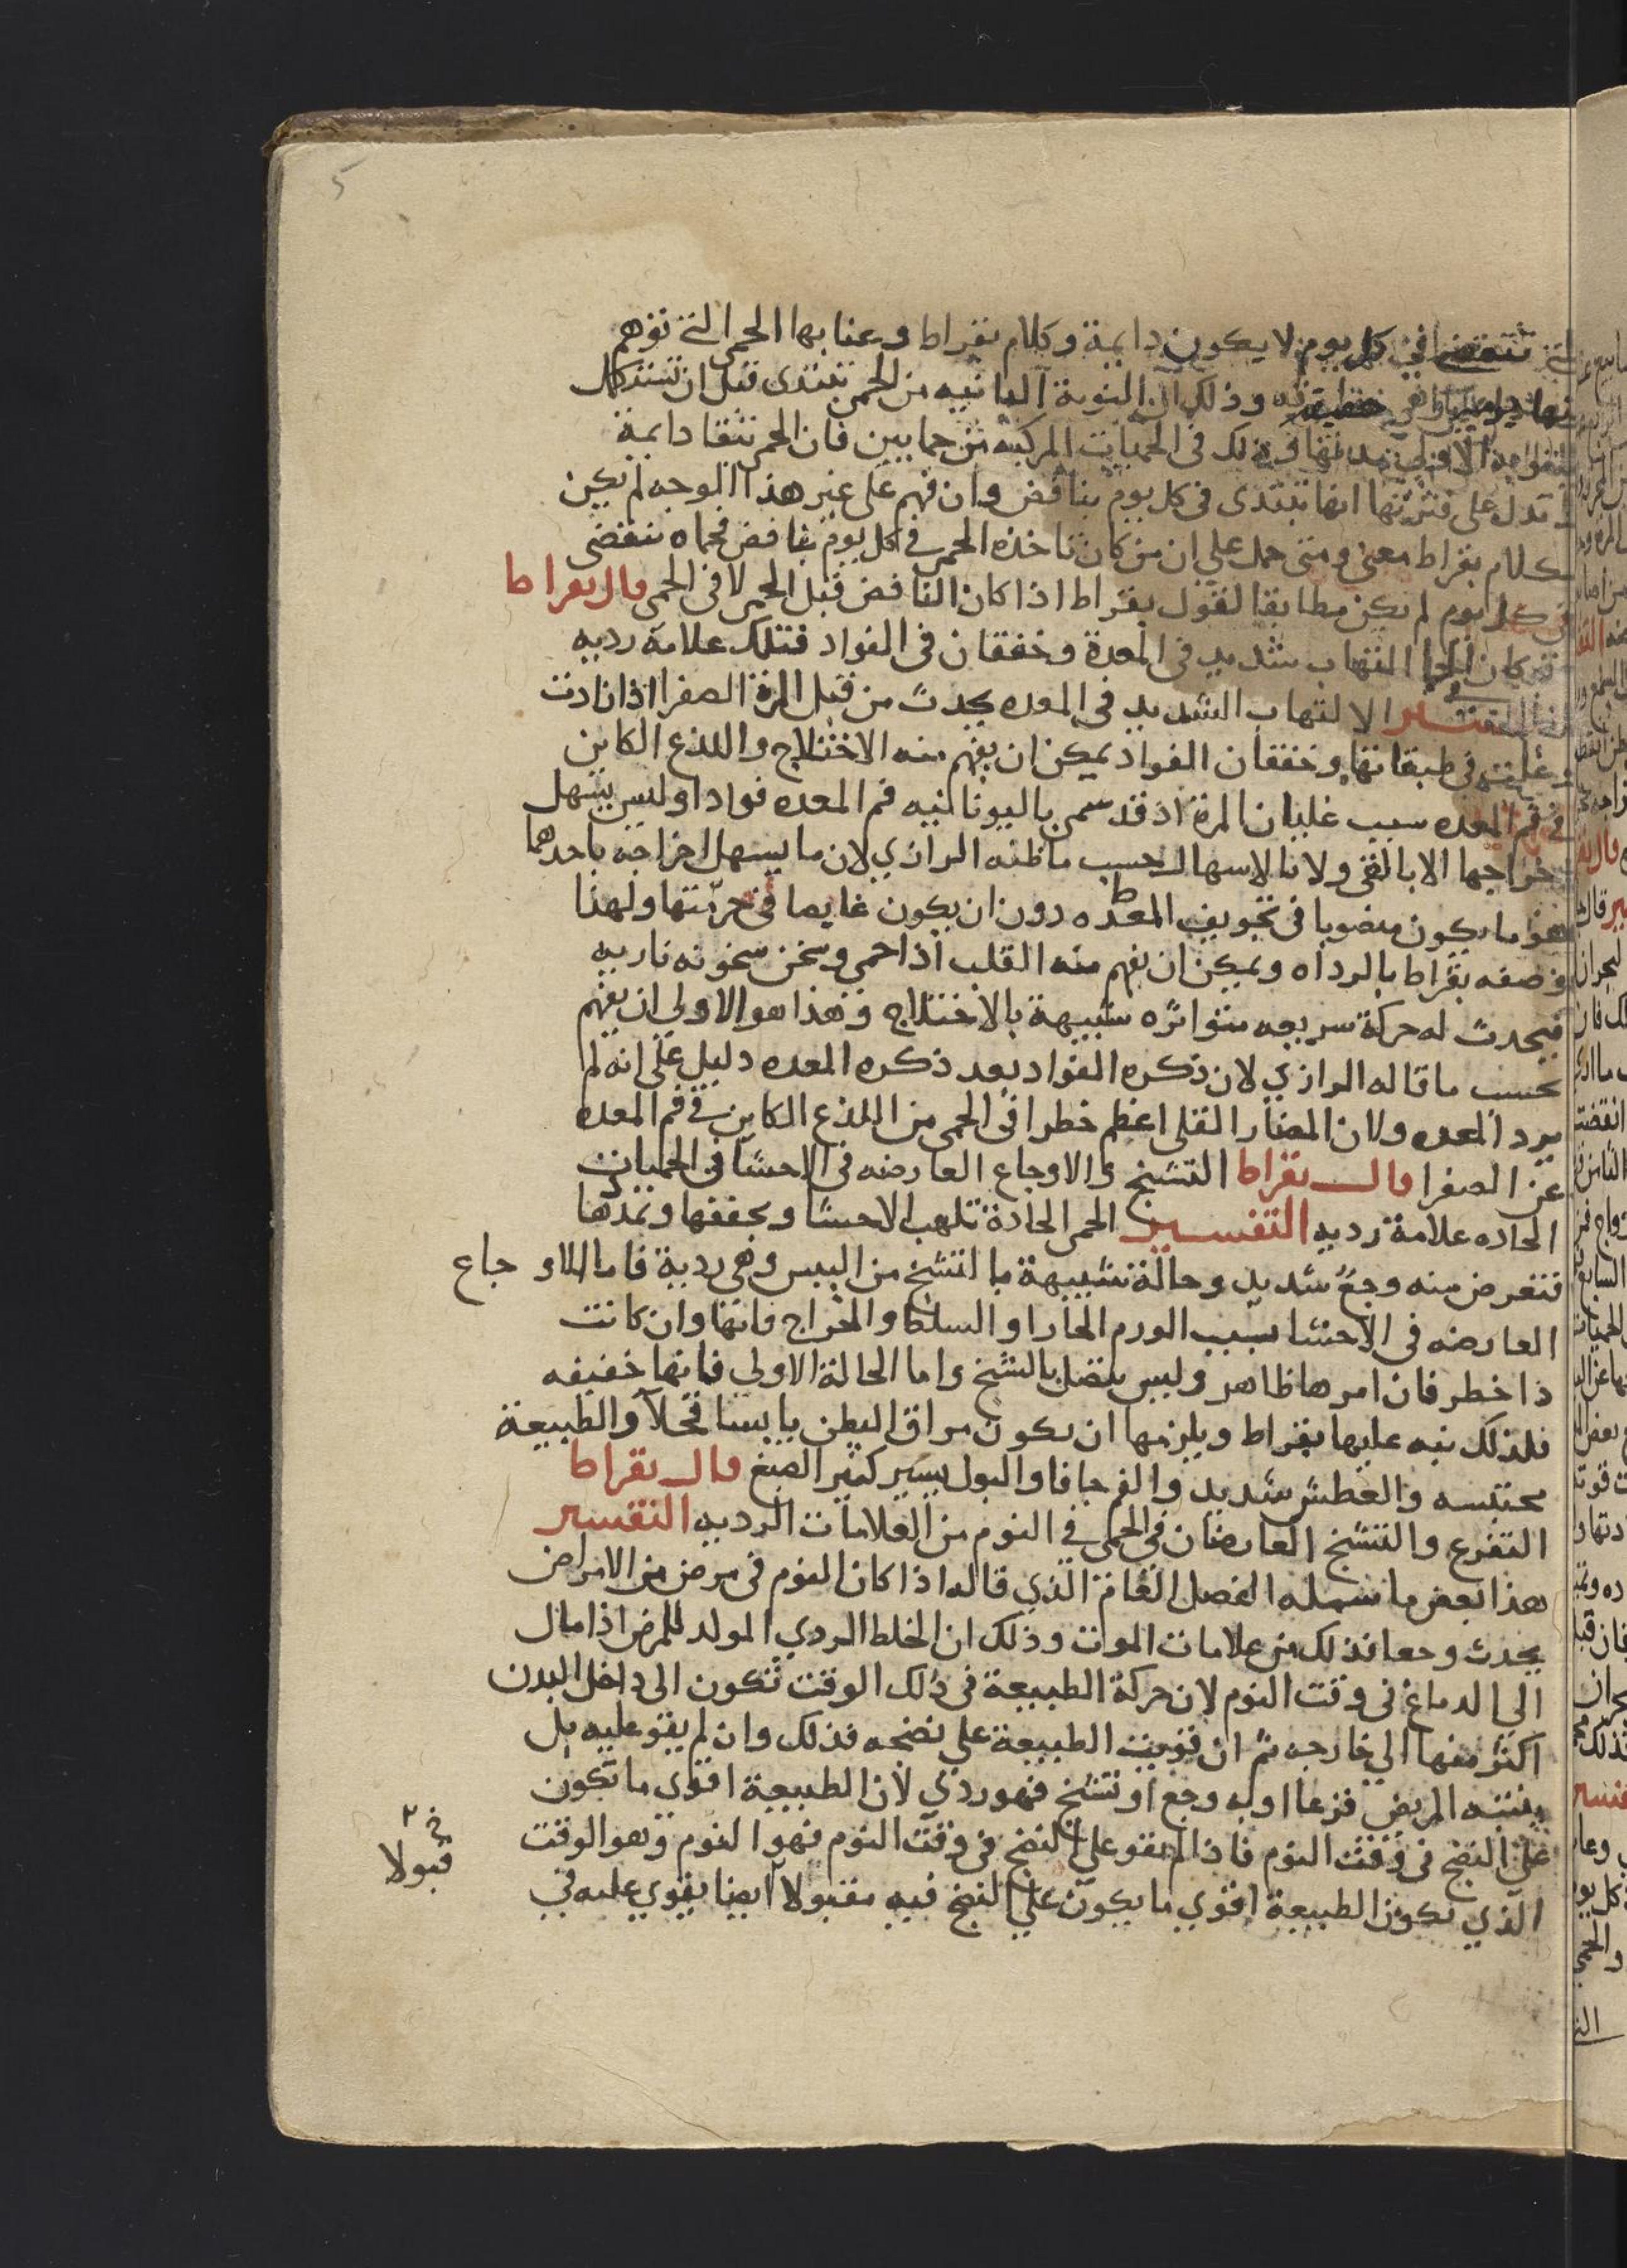 5
تنقضى في كل يوم لا يكون دايمة وكلام بقراط وعنا بها الحمى التى توهم
وذلك ان النوبة الثانيه من الحمى تبتدى قبل ان تستكمل
الاولى فى ذلك فى الحميات المركبه من حمايين فان الحمى تبقا دايمة
تدل على فترتها انها تبتدى فى كل يوم بنافض وان فهم على غير هذا الوجه لم يكن
لكلام بقراط معنى ومتى حمل على ان من كان تاخذه الحمى فى كل يوم بنافض فحماه تنقضى
فى كل يوم لم يكن مطابقا لقول بقراط اذا كان النافض قبل الحمى لا فى الحمى قال بقراط
التهاب شديد فى المعدة وخفقان فى الفواد فتلك علامة رديه
التفسير الالتهاب الشديد فى المعده يحدث من قبل المرة الصفرا اذا تادت
وغاصت فى طبقاتها وخفقان الفواد يمكن ان يفهم منه الاختلاج واللذع الكاين
فى فم المعده سبب غليان المرة اذ قد سمى باليونانيه فم المعده فوادا وليس يسهل
اخراجها الا بالقى ولا بالاسهال حسب ما ظنه الرازي لان ما يسهل اخراجه باحدهما
هو ما يكون منصوبا فى تجويف المعده دون ان يكون غايصا فى حرمتها ولهذا
وصفه بقراط بالرداه ويمكن ان يفهم منه القلب اذا حمى وسخن سخونه ناريه
فيحدث له حركة سريعه متواتره شبيهة بالاختلاج وهذا هو الاولى ان يفهم
بحسب ما قاله الرازي لان ذكره الفواد بعد ذكره المعده دليل على انه لم
يرد المعده ولان المضار القلى اعظم خطرا فى الحمى من اللذع الكاين فى فم المعده
عن الصفرا قال بقراط التشنج والاوجاع العارضه فى الاحشا فى الحميات
الحاده علامة رديه التفسير الحمى الحادة تلهب الاحشا وبحففها وتمدها
فتعرض منه وجع شديد وحالة شبيهة بالتشنج من اليبس وهى ردية فاما الاوجاع
العارضه فى الاحشا بسبب الورم الحار او السلكا والخراج فانها وان كانت
ذا خطر فان امرها ظاهر وليس متصل بالتشنج واما الحالة الاولى فانها خفيفه
فلذلك نبه عليها بقراط ويلزمها ان يكون مراق البطن يابسا قحلا والطبيعة
محتبسه والعطش شديد والفم جافا والبول يسير كثير الصبغ قال بقراط
التفزع والتشنج العارضان فى الحمى فى النوم من العلامات الرديه التفسير
هذا بعض ما شمله الفصل العام الذي قاله اذا كان النوم فى مرض من الامراض
يحدث وجعا فذلك من علامات الموت وذلك ان الخلط الردي المولد للمرض اذا مال
الي الدماغ فى وقت النوم لان حركة الطبيعة فى ذلك الوقت تكون الى داخل البدن
اكثر منها الي خارجه ثم ان قويت الطبيعة على نضجه فذلك وان لم يقو عليه بل
ينتبه المريض فزعا او به وجع او تشنج فهو ردي لان الطبيعة اقوى ما تكون
على النضج فى وقت النوم فاذا لم يقو على النضج فى وقت النوم فهو النوم وهو الوقت
الذي تكون الطبيعة اقوي ما يكون على النضج فيه مقبولا ايضا يقوي عليه فى
قبولا